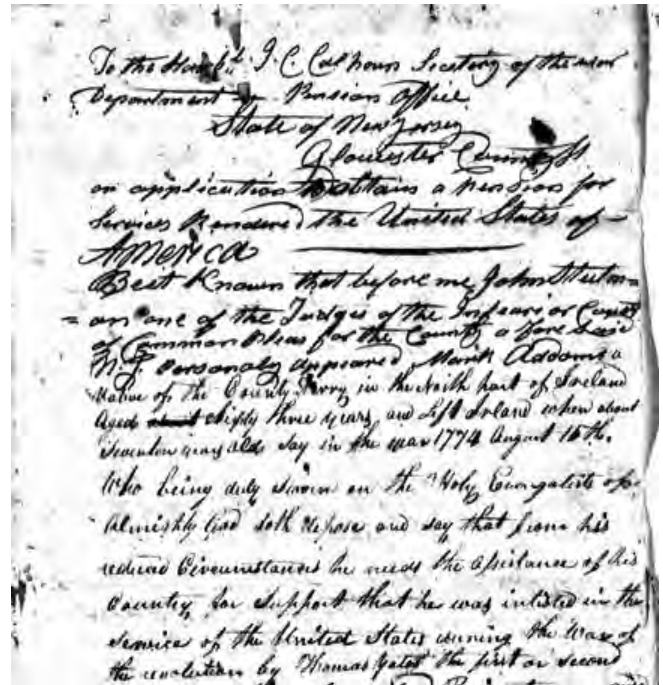 To the Honbl. J. C. Calhoun Secetary of the war
Department Pension Office
State of New Jersey
Gloucester County SS
on application to obtain a Pension for
Services Rendered the United States of
America
Beit Known that before me John
= on one of the Judges of the Infearior Court
of Common Pleas for the County a fore Said
N. J. Personaly appeared Mark Addams a
Native of the County Derry in the North part of Ireland
Aged Eighty three years, and Left Ireland when about
Seventen years olds say in the year 1774 August 16th.
Who being duly sworn on the Holy Evangelists of
Almighty God doth depose and say that from his
reduced Circumstances he needs the assistance of his
Country for support that he was inlisted in the
Service of the United States during the War of
the revolution by Thomas Yates the first or second